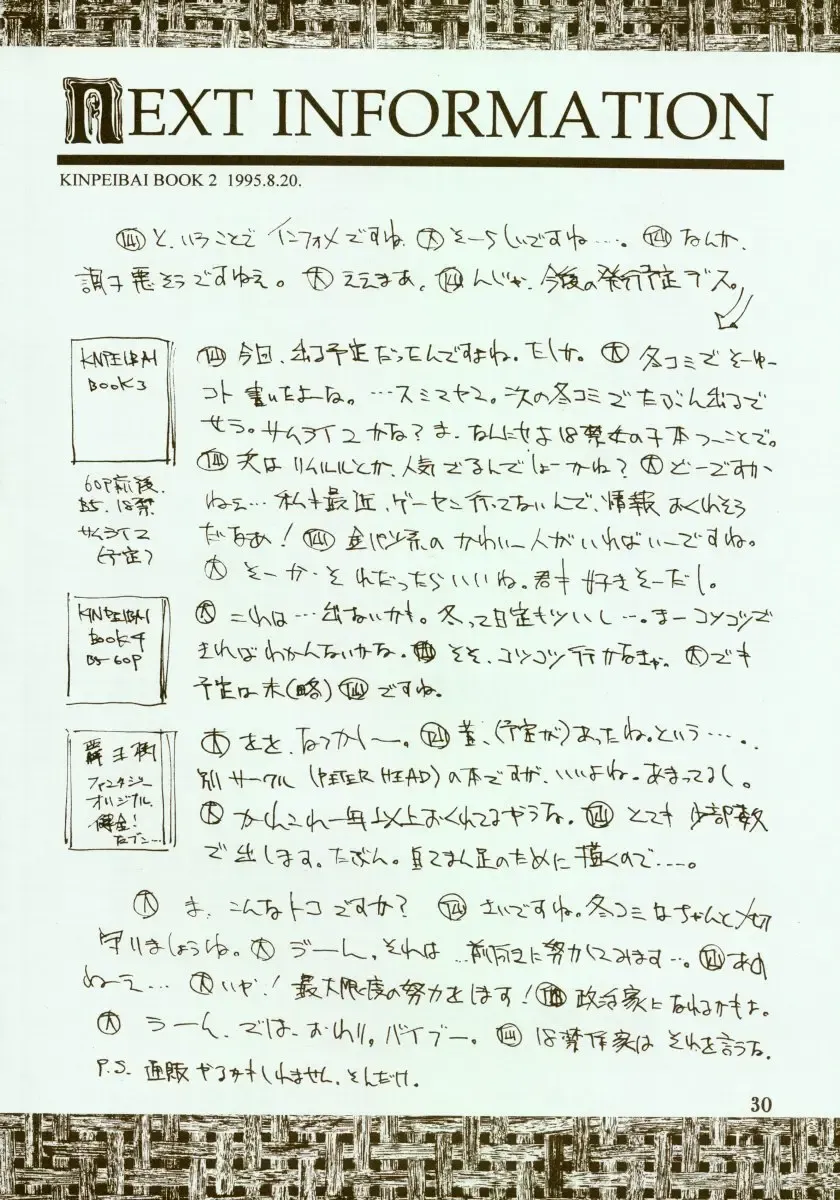 NEXT INFORMATION
KINPEIBAI BOOK 2 1995.8.20.
と、いうことで インフォメですね 大 そーらしいですね…。 なんか、
調子悪そうですねえ。 大 ええまあ、 んじゃ、今後の発行予定デス。
KINPEIBAI
BOOK 3
60P前後、
B5、18禁
サムライ2
(予定)
今回、出る予定だったんですよね。たしか。 大 冬コミでそーゆー
コト書いたよーな。…スミマセン。次の冬コミでたぶん出るで
せう。サムライ2かな？ま、なんにせよ18禁女の子本つーことで。
はリムルルとか、人気でるんでしょーかね？ 大 どーですか
ねえ…私も最近、ゲーセン行ってないんで、情報おくれそう
だなあ！ 金パツ系のかわいー人がいればいーですね。
大 そーか、それだったらいいね。君も好きそーだし。
KINPEIBAI
BOOK 4
B5 60P
大 これは…出ないかも。冬って日定もツいし…。まーコツコツで
きればわかんないかな。 そそ、コツコツ行かなきゃ。 大 でも
予定は未(略) ですね。
覇王樹
ファンタジー
オリジナル
大 をを、なつかしー。 昔、(予定が)あったね。という…。
別サークル(PETER HEAD)の本ですが、いいよね。あまってるし。
大 かれこれ一年以上おくれてるやうな。 とても少部数
で出します。たぶん。自己まん足のために描くので…。
大 ま、こんなトコですか？ さいですね。冬コミはちゃんと〆切
守りましょうね。 大 うーん、それは…前向きに努力してみます…。 あの
ねーえ… 大 いや！最大限度の努力をします！ 政治家になれるかもよ。
大 うーん、では、おわり。バイブー。 18禁作家はそれを言うな。
P.S. 通販やるかもしれません。そんだけ。
30